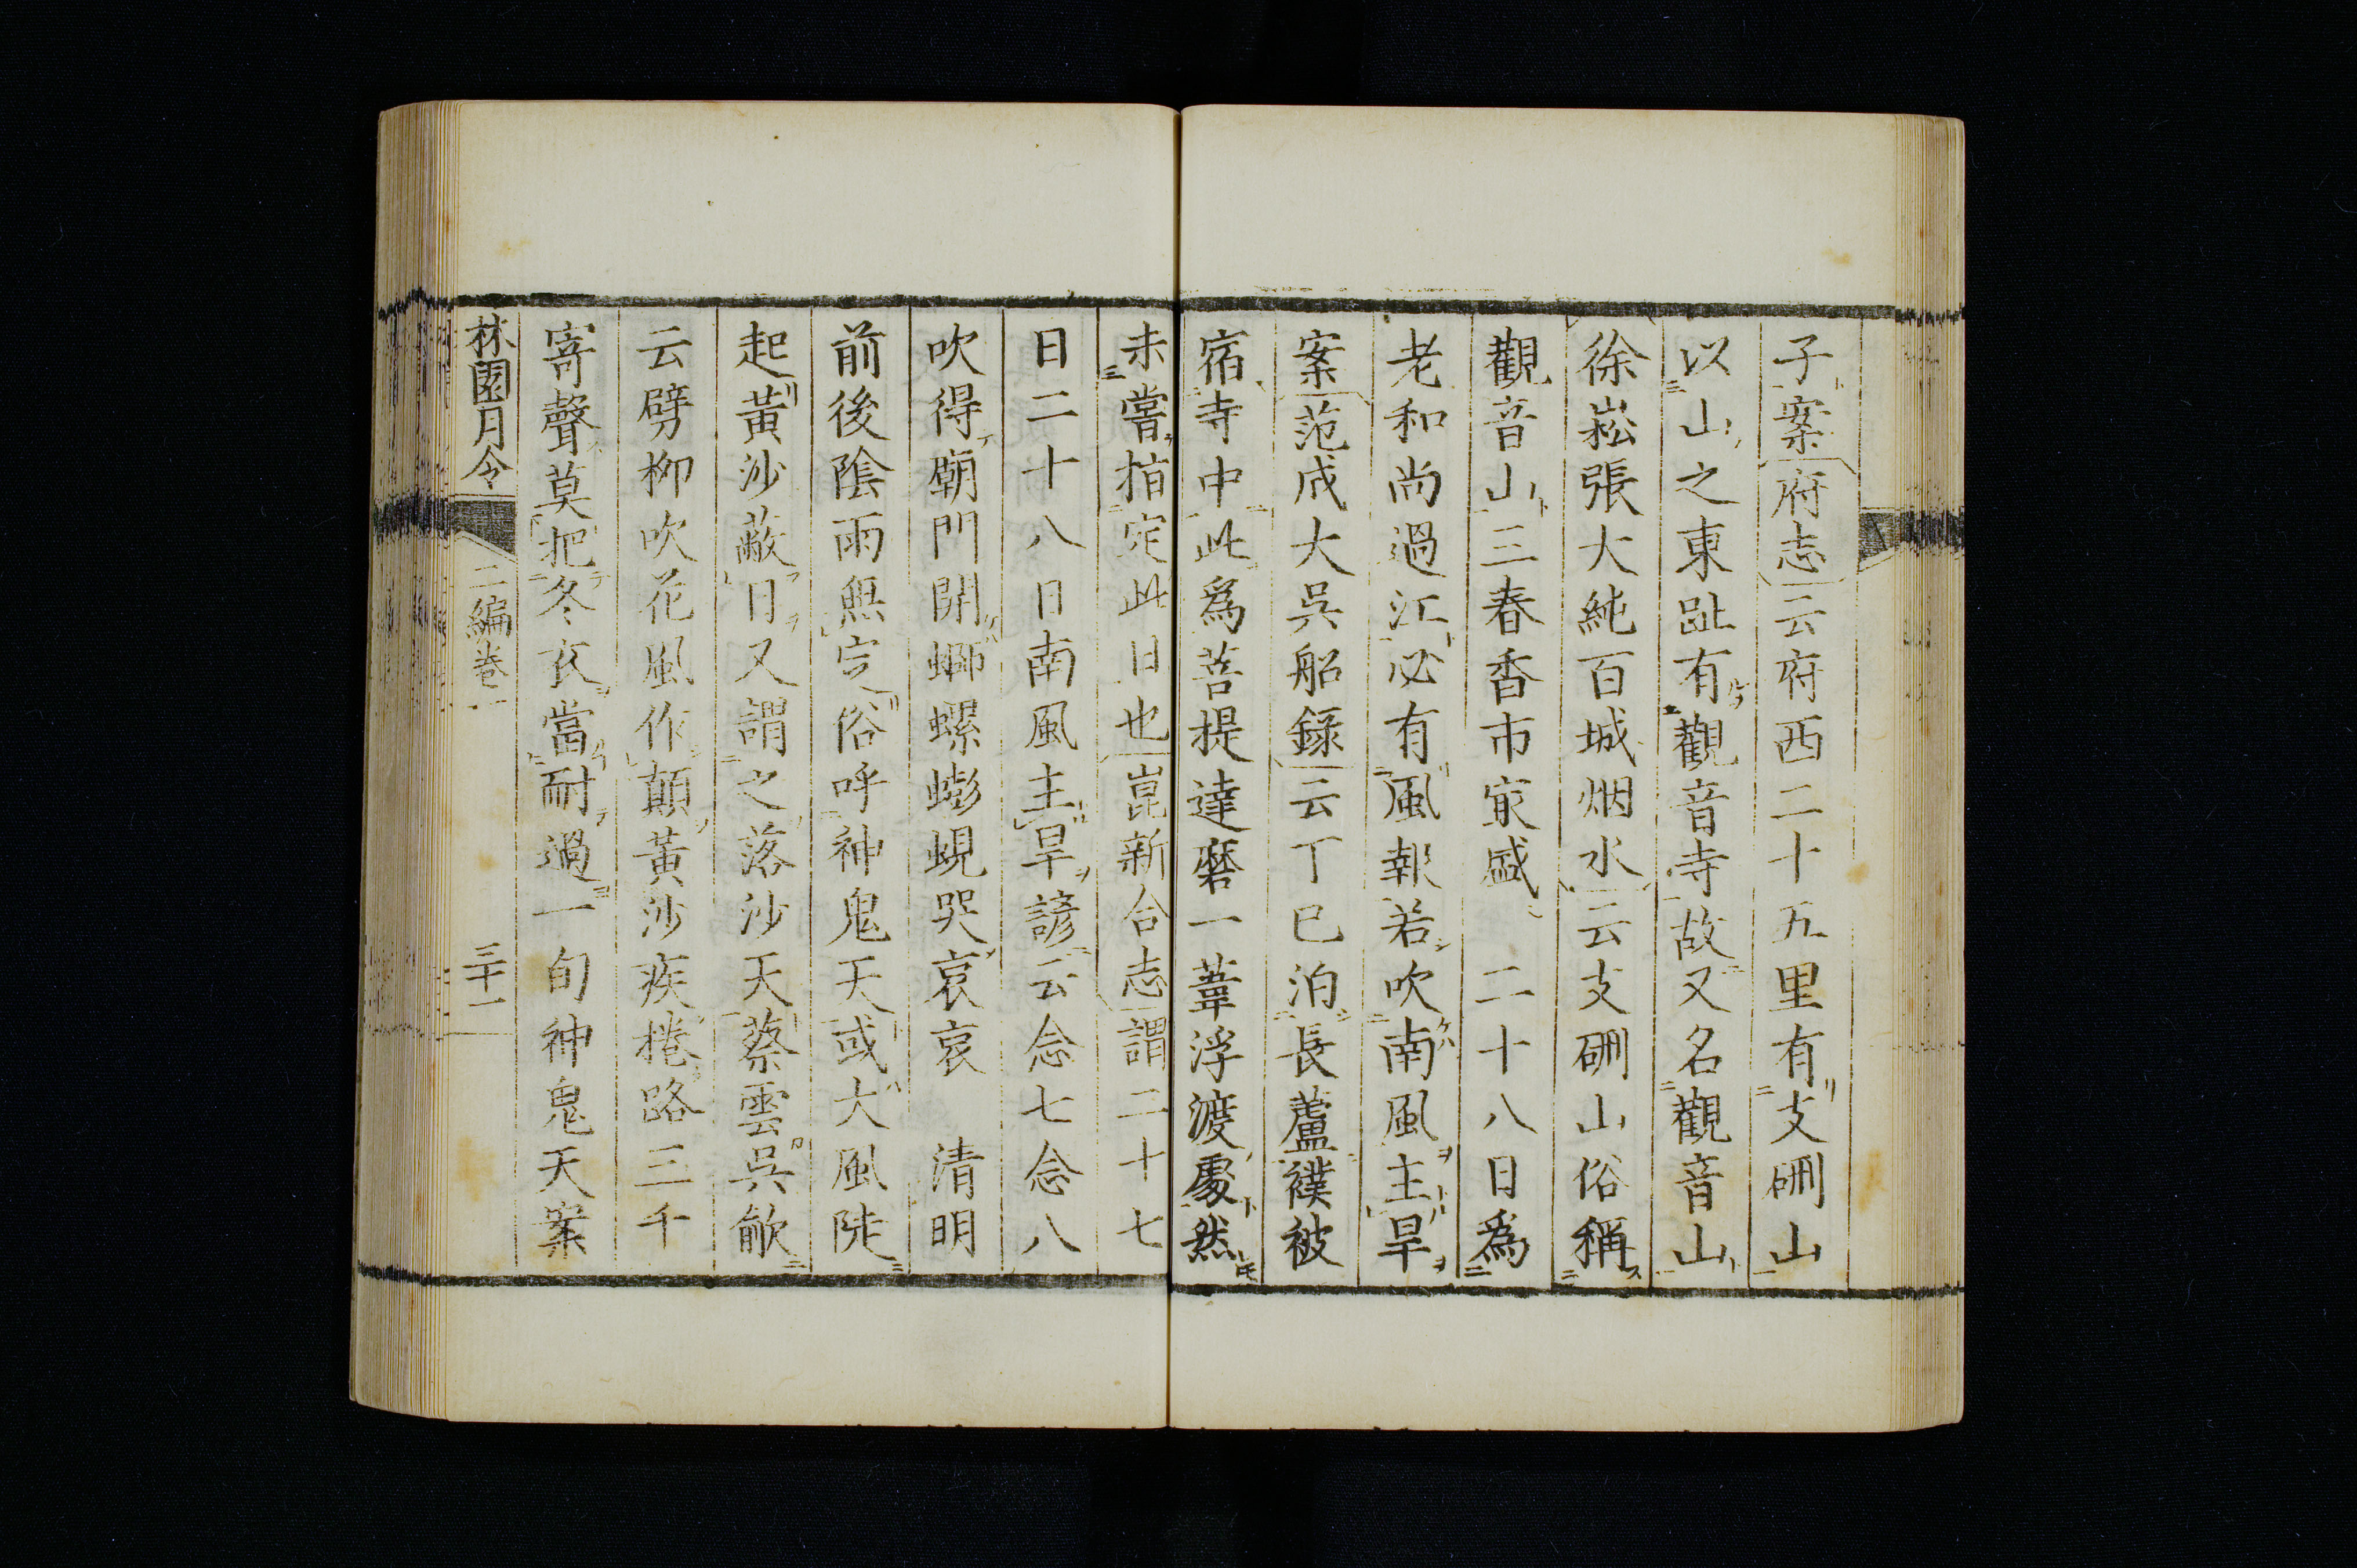 子案府志云府西二十五里有支硎山
以山之東趾有觀音寺故又名觀音山
徐崧張大純百城烟水云支硎山俗稱
觀音山三春香市冣盛　二十八日爲
老和尚過江必有風報若吹南風主旱
案范成大吳船錄云丁巳泊長蘆襆被
宿寺中此爲菩提達磨一葦浮渡處然
未嘗指定此日也崑新合志謂二十七
日二十八日南風主旱諺云念七念八
吹得廟門開螂螺蟛蜆哭哀哀　清明
前後陰雨無定俗呼神鬼天或大風陡
起黃沙蔽日又謂之落沙天蔡雲吳歈
云劈柳吹花風作顛黃沙疾捲路三千
寄聲莫把冬衣當耐過一旬神鬼天案
林園月令 二編卷一 三十一